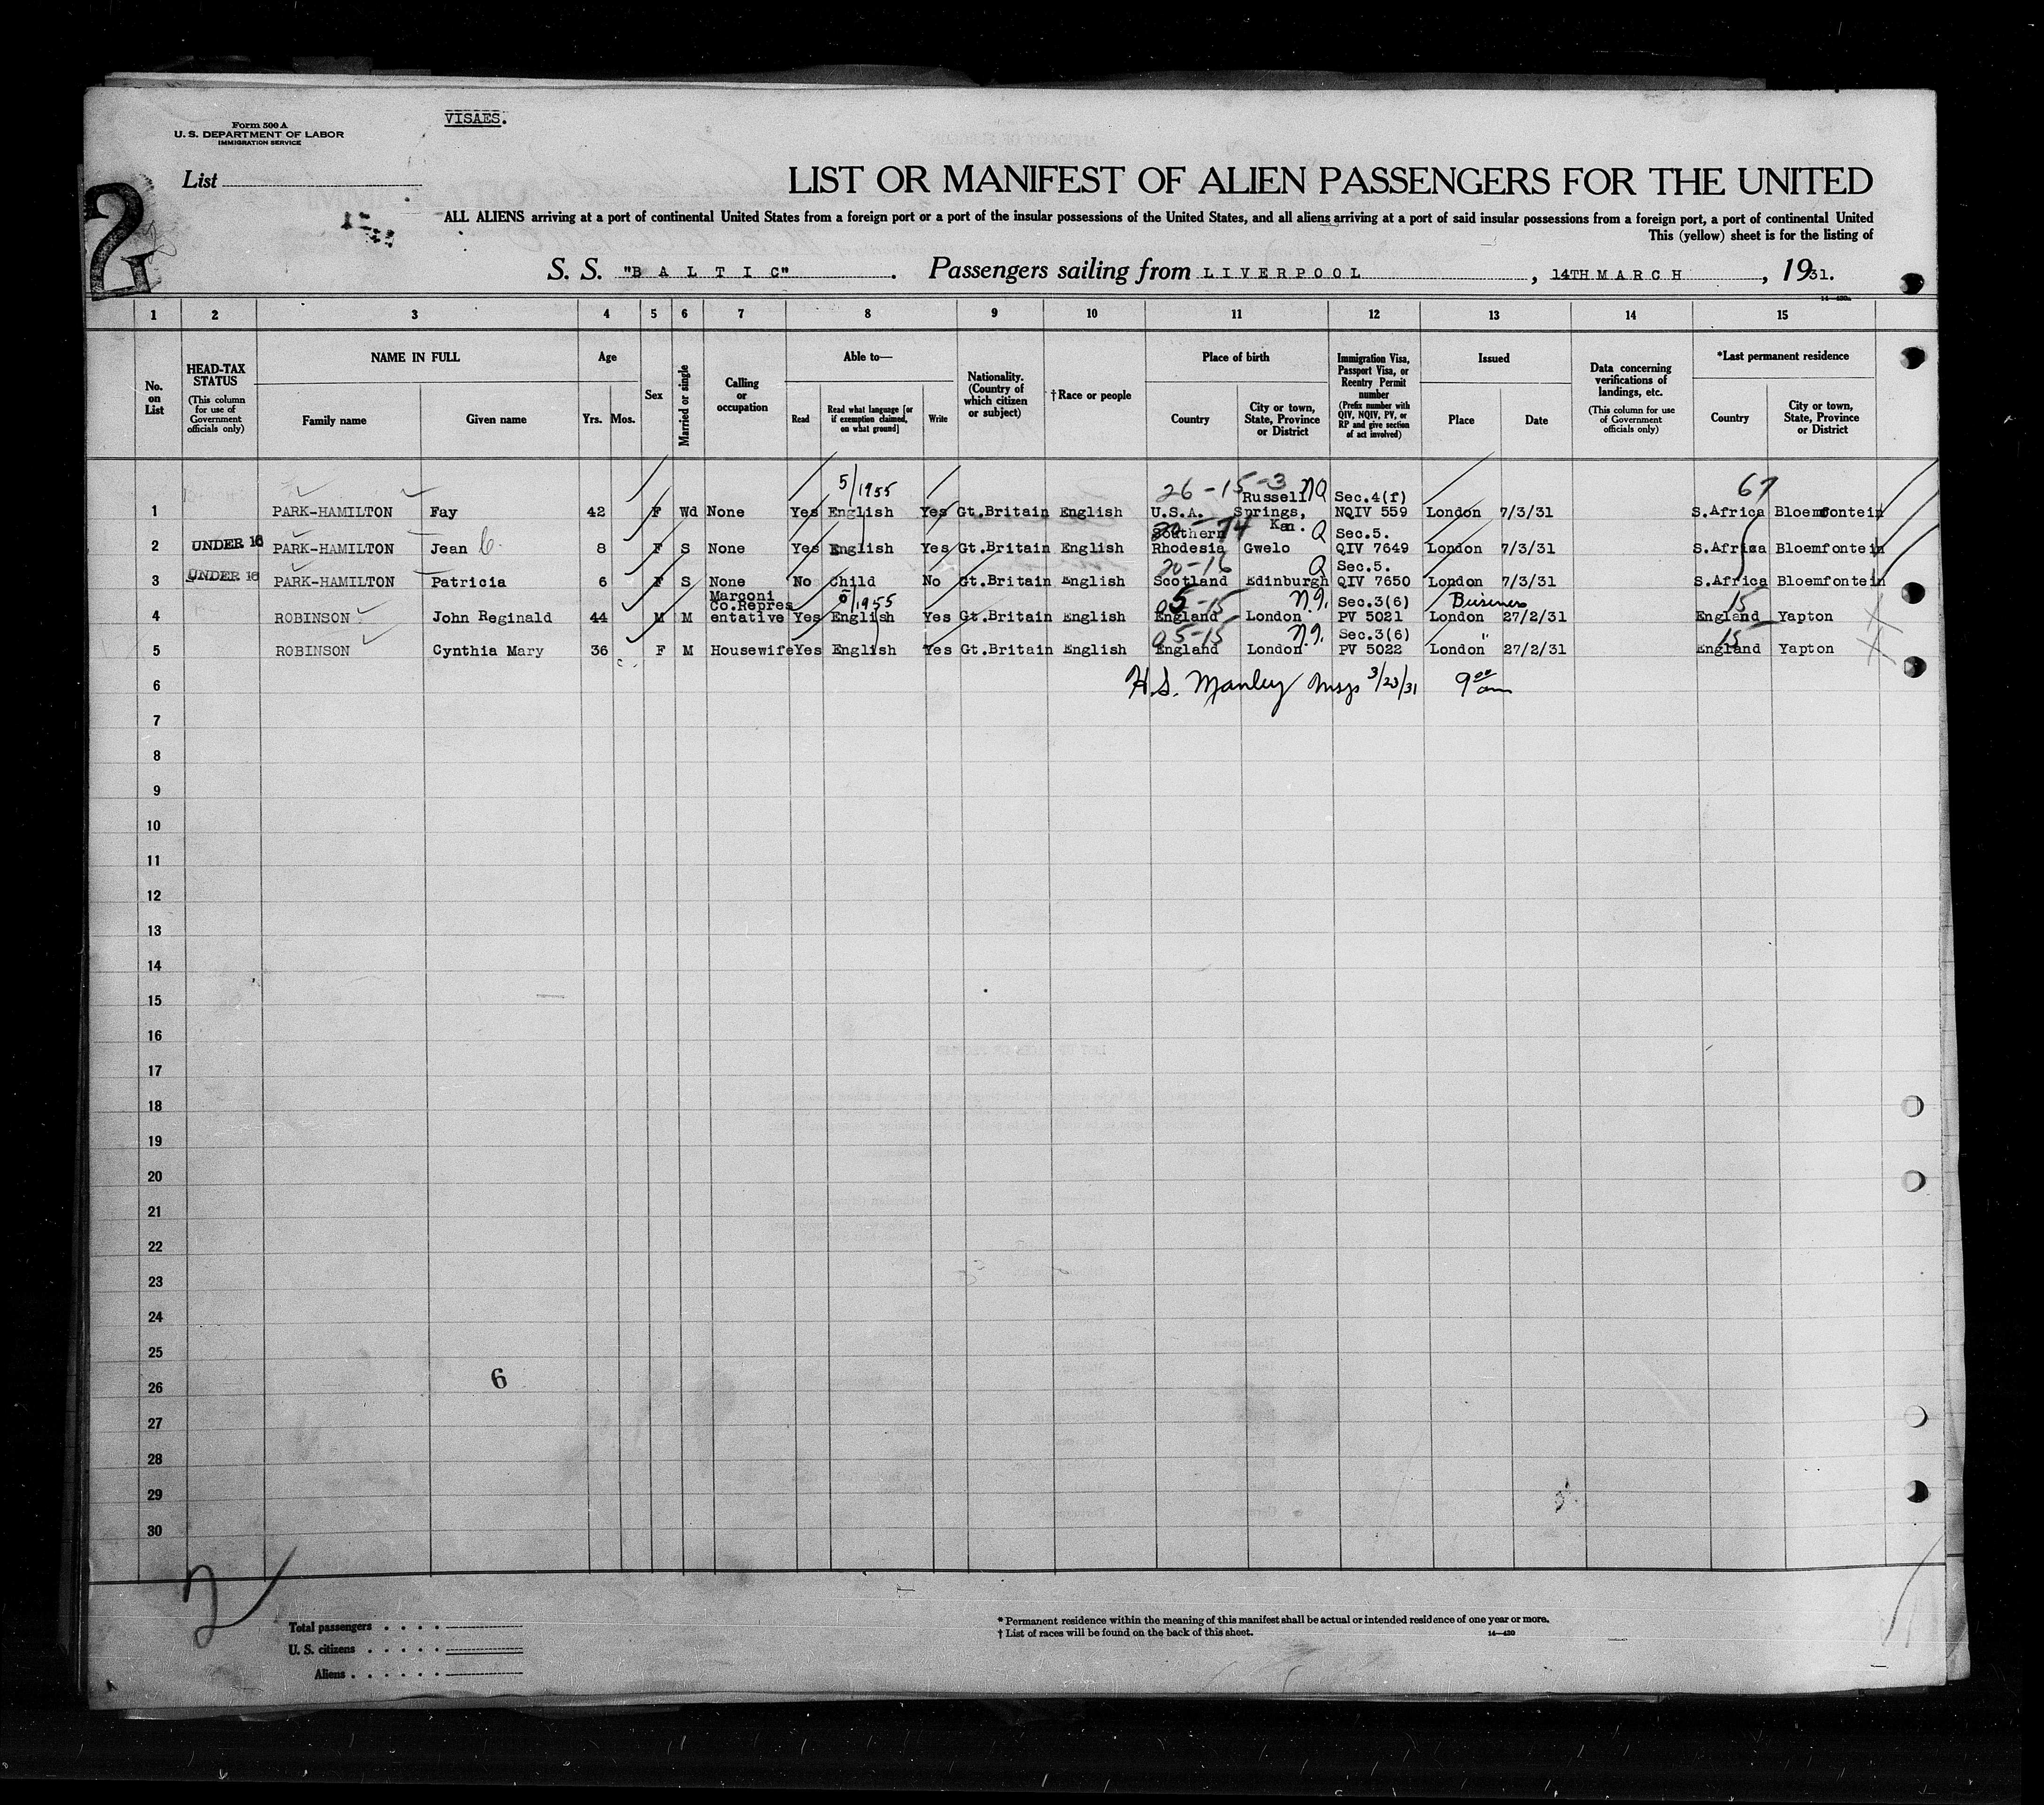 VISAES.
Form 500 A
U. S. DEPARTMENT OF LABOR
IMMIGRATION SERVICE
List
2
LIST OR MANIFEST OF ALIEN PASSENGERS FOR THE UNITED
ALL ALIENS arriving at a port of continental United States from a foreign port or a port of the insular possessions of the United States, and all aliens arriving at a port of said insular possessions from a foreign port, a port of continental United
This (yellow) sheet is for the listing of
S. S. "B A L T I C". Passengers sailing from L I V E R P O O L, 14TH M A R C H, 1931.
1 2 3 4 5 6 7 8 9 10 11 12 13 14 15
No. on List
HEAD-TAX STATUS
(This column for use of Government officials only)
NAME IN FULL
Family name Given name
Age
Yrs. Mos.
Sex
Married or single
Calling or occupation
Able to—
Read Read what language [or if exemption claimed, on what ground] Write
Nationality. (Country of which citizen or subject)
†Race or people
Place of birth
Country City or town, State, Province or District
Immigration Visa, Passport Visa, or Reentry Permit number
(Prefix number with QIV, NQIV, PV, or RP and give section of act involved)
Issued
Place Date
Data concerning verifications of landings, etc.
(This column for use of Government officials only)
*Last permanent residence
Country City or town, State, Province or District
5/1955 26-15-3 Russell NQ Sec.4(f) 67
1 PARK-HAMILTON Fay 42 F Wd None Yes English Yes Gt.Britain English U.S.A. Springs, Kan. NQIV 559 London 7/3/31 S.Africa Bloemfontein
Southern 74 Q Sec.5.
2 UNDER 16 PARK-HAMILTON Jean C. 8 F S None Yes English Yes Gt.Britain English Rhodesia Gwelo QIV 7649 London 7/3/31 S.Africa Bloemfontein
20-16 Q Sec.5.
3 UNDER 16 PARK-HAMILTON Patricia 6 F S None No Child No Gt.Britain English Scotland Edinburgh QIV 7650 London 7/3/31 S.Africa Bloemfontein
Marconi Co.Repres 1955 05-15 Sec.3(6) Business 15
4 ROBINSON John Reginald 44 M M entative Yes English Yes Gt.Britain English England London PV 5021 London 27/2/31 England Yapton
05-15 Sec.3(6) " 15
5 ROBINSON Cynthia Mary 36 F M Housewife Yes English Yes Gt.Britain English England London PV 5022 London 27/2/31 England Yapton
6 H.S. Manley 3/23/31 9 00 am
7
8
9
10
11
12
13
14
15
16
17
18
19
20
21
22
23
24
25
26
6
27
28
29
30
2
Total passengers
U. S. citizens
Aliens
* Permanent residence within the meaning of this manifest shall be actual or intended residence of one year or more.
† List of races will be found on the back of this sheet.
14—430